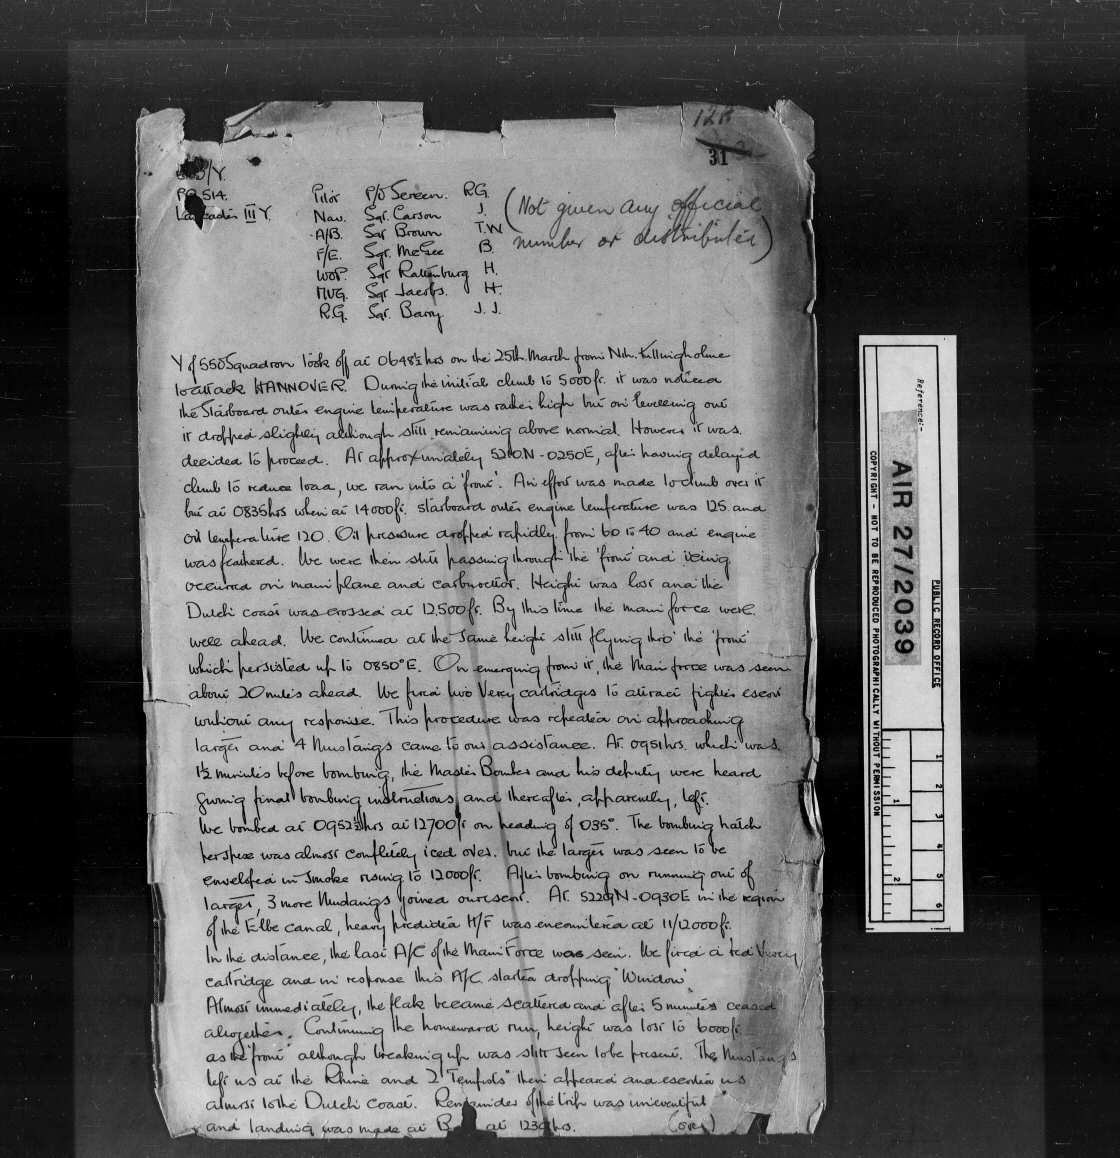 12B
31
/Y
PB 514.
Lancaster III Y.
Pilot P/O Sereen. R.G.
Nav. Sgt. Carson J.
A/B. Sgt Brown T.W
F/E. Sgt. McGee B.
WOP. Sgt Rattenburg H.
MUG. Sgt Jacobs. H.
R.G. Sgt. Barry J. J.
(Not given any official
number or distributed)
Y of 550 Squadron took off at 0648½ hrs on the 25th. March from Nth. Killingholme
to attack HANNOVER. During the initial climb to 5000ft. it was noticed
the Starboard outer engine temperature was rather high but on levelling out
it dropped slightly although still remaining above normal. However it was
decided to proceed. At approximately 5210N - 0250E, after having delayed
climb to reduce load, we ran into a 'front'. An effort was made to climb over it
but at 0835hrs when at 14000ft. starboard outer engine temperature was 125 and
oil temperature 120. Oil pressure dropped rapidly from 60 to 40 and engine
was feathered. We were then still passing through the 'front' and icing
occurred on mainplane and carburettor. Height was lost and the
Dutch coast was crossed at 12,500ft. By this time the main force were
well ahead. We continued at the same height still flying thro' the 'front'
which persisted up to 0850°E. On emerging from it, the Main force was seen
about 20 miles ahead. We fired two Very cartridges to attract fighter escort
without any response. This procedure was repeated on approaching
target and 4 Mustangs came to our assistance. At 0951hrs. which was
1½ minutes before bombing, the Master Bomber and his deputy were heard
giving final bombing instructions and thereafter, apparently, left.
We bombed at 0952½hrs at 12700ft on heading of 035°. The bombing hatch
perspex was almost completely iced over. but the target was seen to be
enveloped in smoke rising to 12000ft. After bombing on running out of
target, 3 more Mustangs joined our escort. At 5229N - 0930E in the region
of the Elbe canal, heavy predicted H/F was encountered at 11/12000ft.
In the distance, the last A/C of the Main Force was seen. We fired a red Verey
cartridge and in response this A/C started dropping "Window".
Almost immediately, the flak became scattered and after 5 minutes ceased
altogether. Continuing the homeward run, height was lost to 6000ft.
as the 'front' although breaking up was still seen to be present. The Mustangs
left us at the Rhine and 2 "Tempests" then appeared and escorted us
almost to the Dutch Coast. Remainder of the trip was uneventful
and landing was made at B at 1239hrs. (over)
Reference:-
AIR 27/2039
PUBLIC RECORD OFFICE
COPYRIGHT - NOT TO BE REPRODUCED PHOTOGRAPHICALLY WITHOUT PERMISSION
1 2 3 4 5 6
1 2